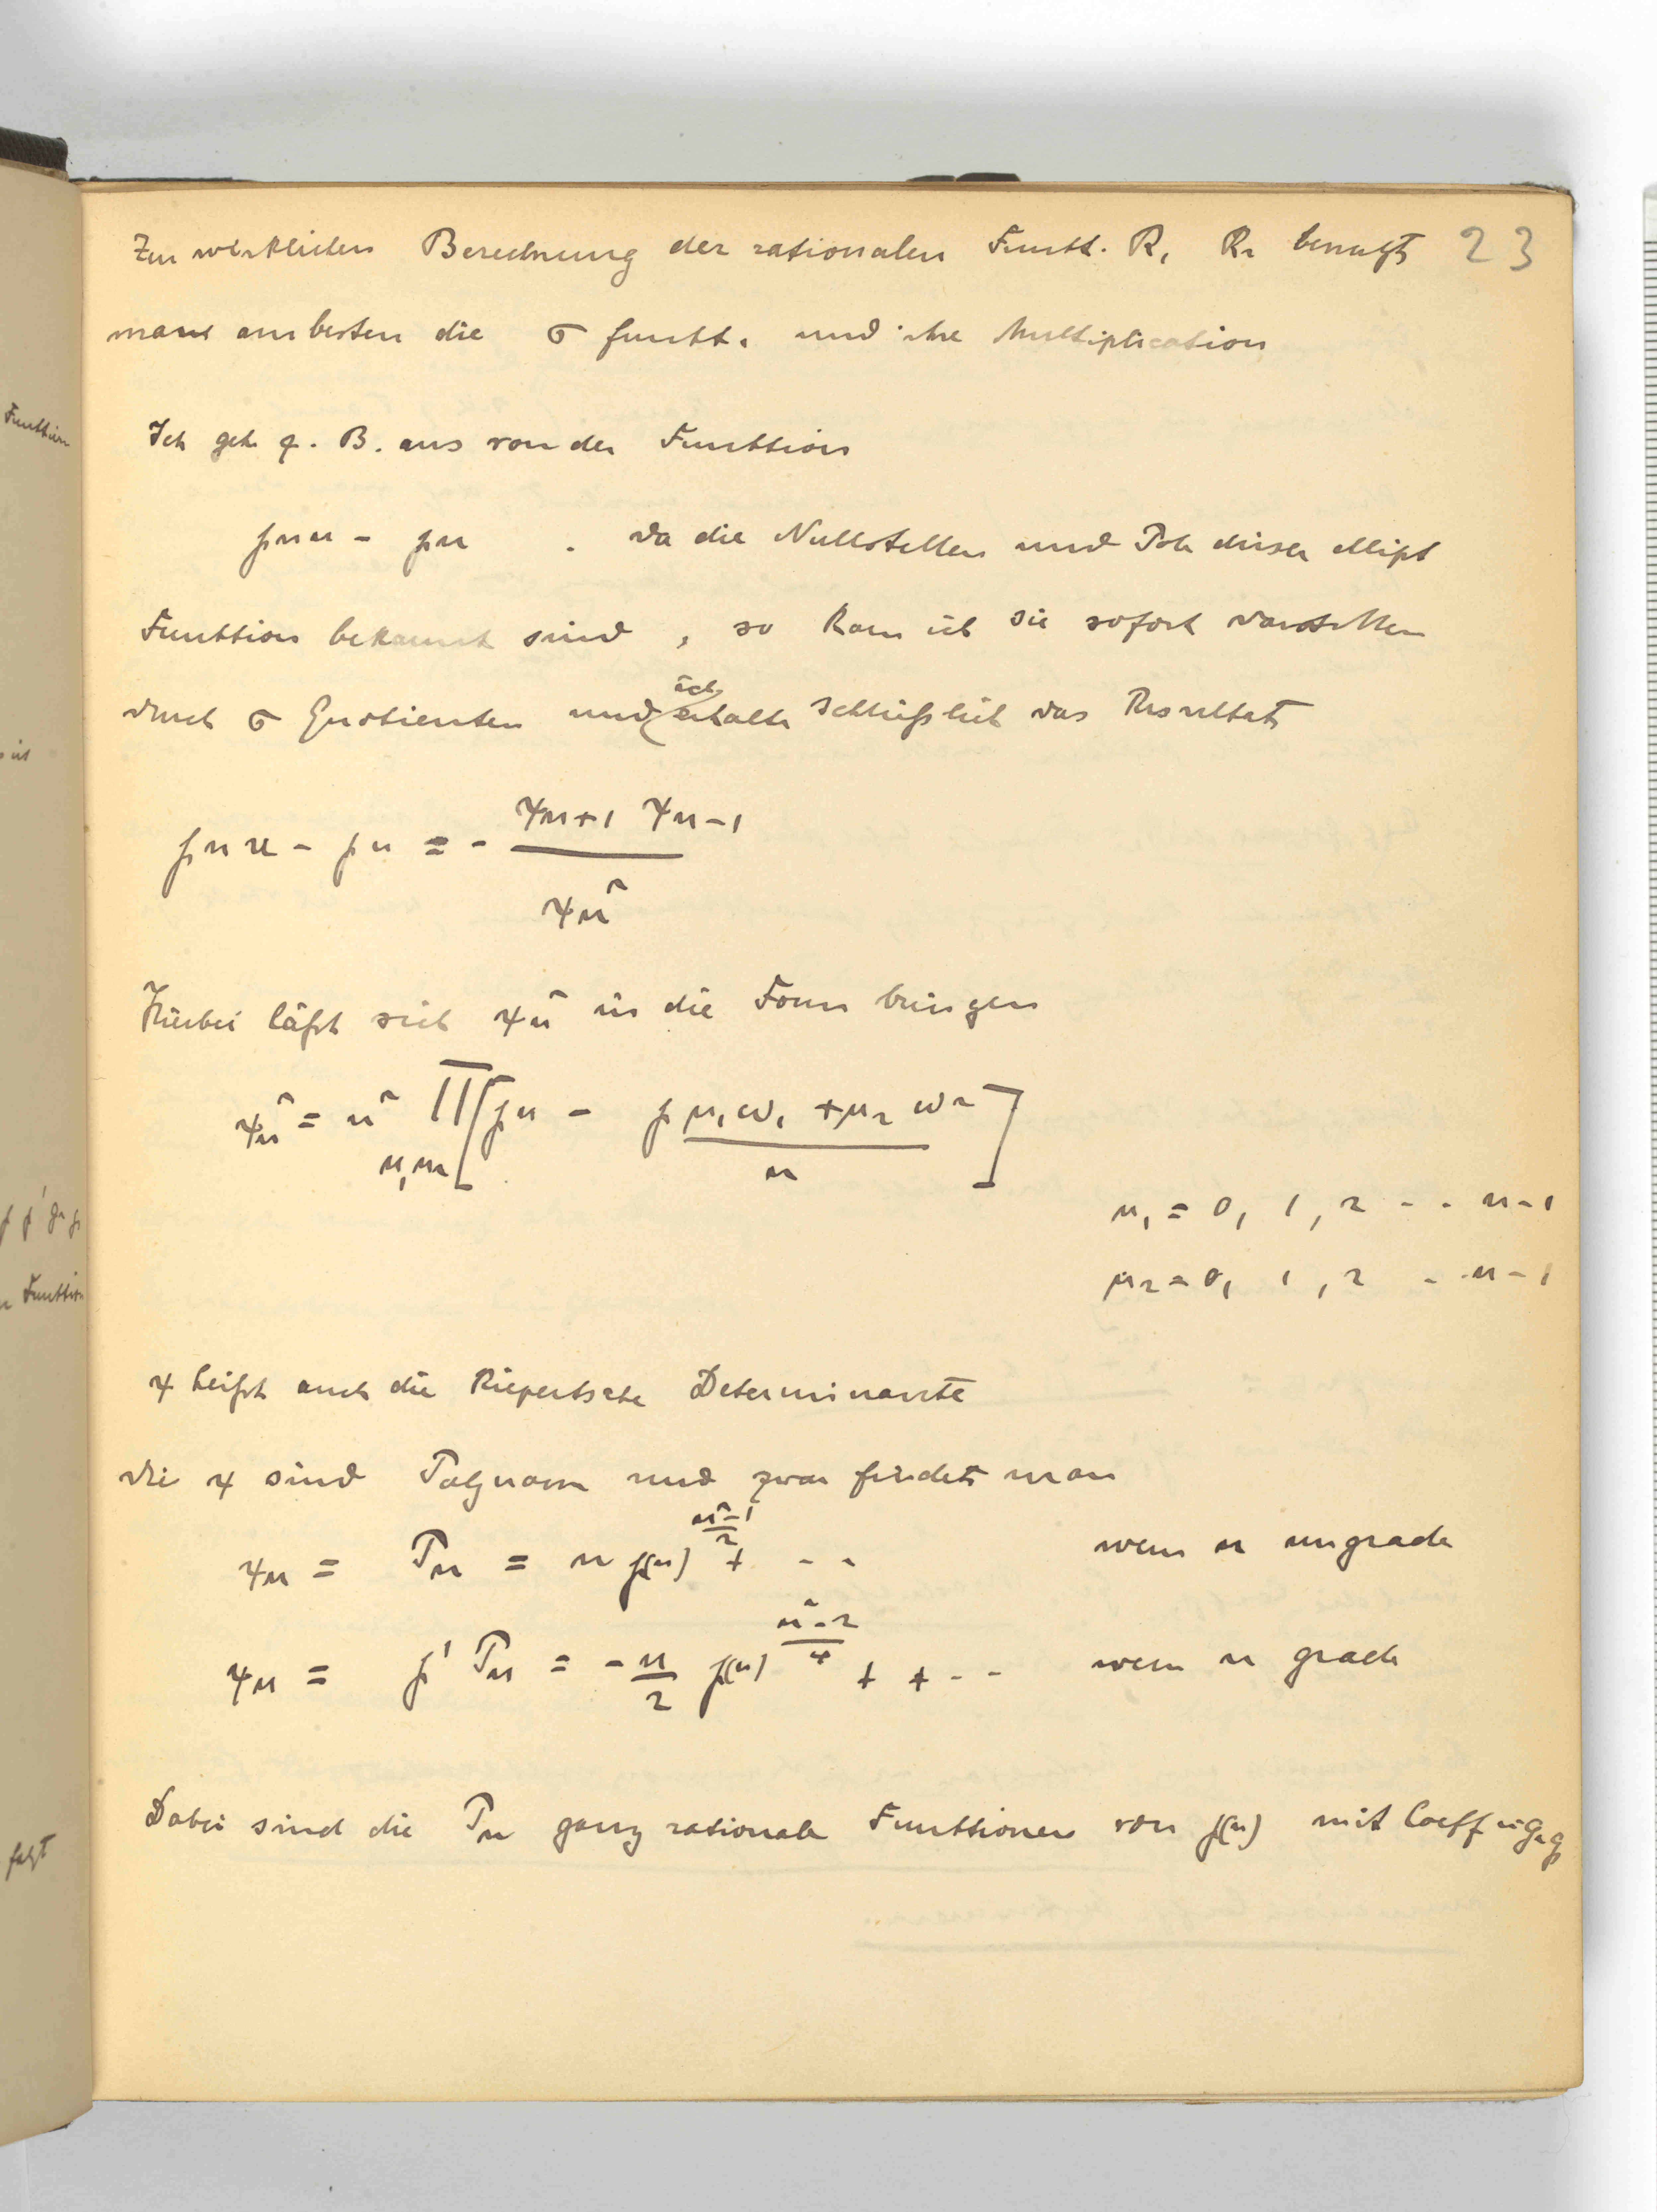 Zur wirklichen Berechnung der rationalen Funkt. R₁ R₂ benutzt 23
man am besten die σ funkt. und ihre Multiplication
Ich gehe z. B. aus von der Funktion
℘nu - ℘u . da die Nullstellen und Pole dieser ellipt
Funktion bekannt sind , so kann ich sie sofort darstellen
durch σ Quotienten und ich erhalte schließlich das Resultat
℘nu - ℘u = - ψn+1 ψn-1 / ψn²
Hierbei läßt sich ψn² in die Form bringen
ψn² = n² ∏ [℘u - ℘ (μ₁ω₁ + μ₂ω₂)/n]
μ₁μ₂
μ₁ = 0, 1, 2 - - n-1
μ₂ = 0, 1, 2 - - n-1
ψ heißt auch die Kiepertsche Determinante
die ψ sind Polynome und zwar findet man
ψn = Pn = n ℘(u)^((n²-1)/2) + - - wenn n ungrade
ψn = ℘' Pn = - n/2 ℘(u)^((n²-2)/4) + + - - wenn n grade
Dabei sind die Pn ganz rationale Funktionen von ℘(u) mit Coeff in g₂g₃
Funktion
ist
℘ ℘' g₂ g₃
Funktion
folgt